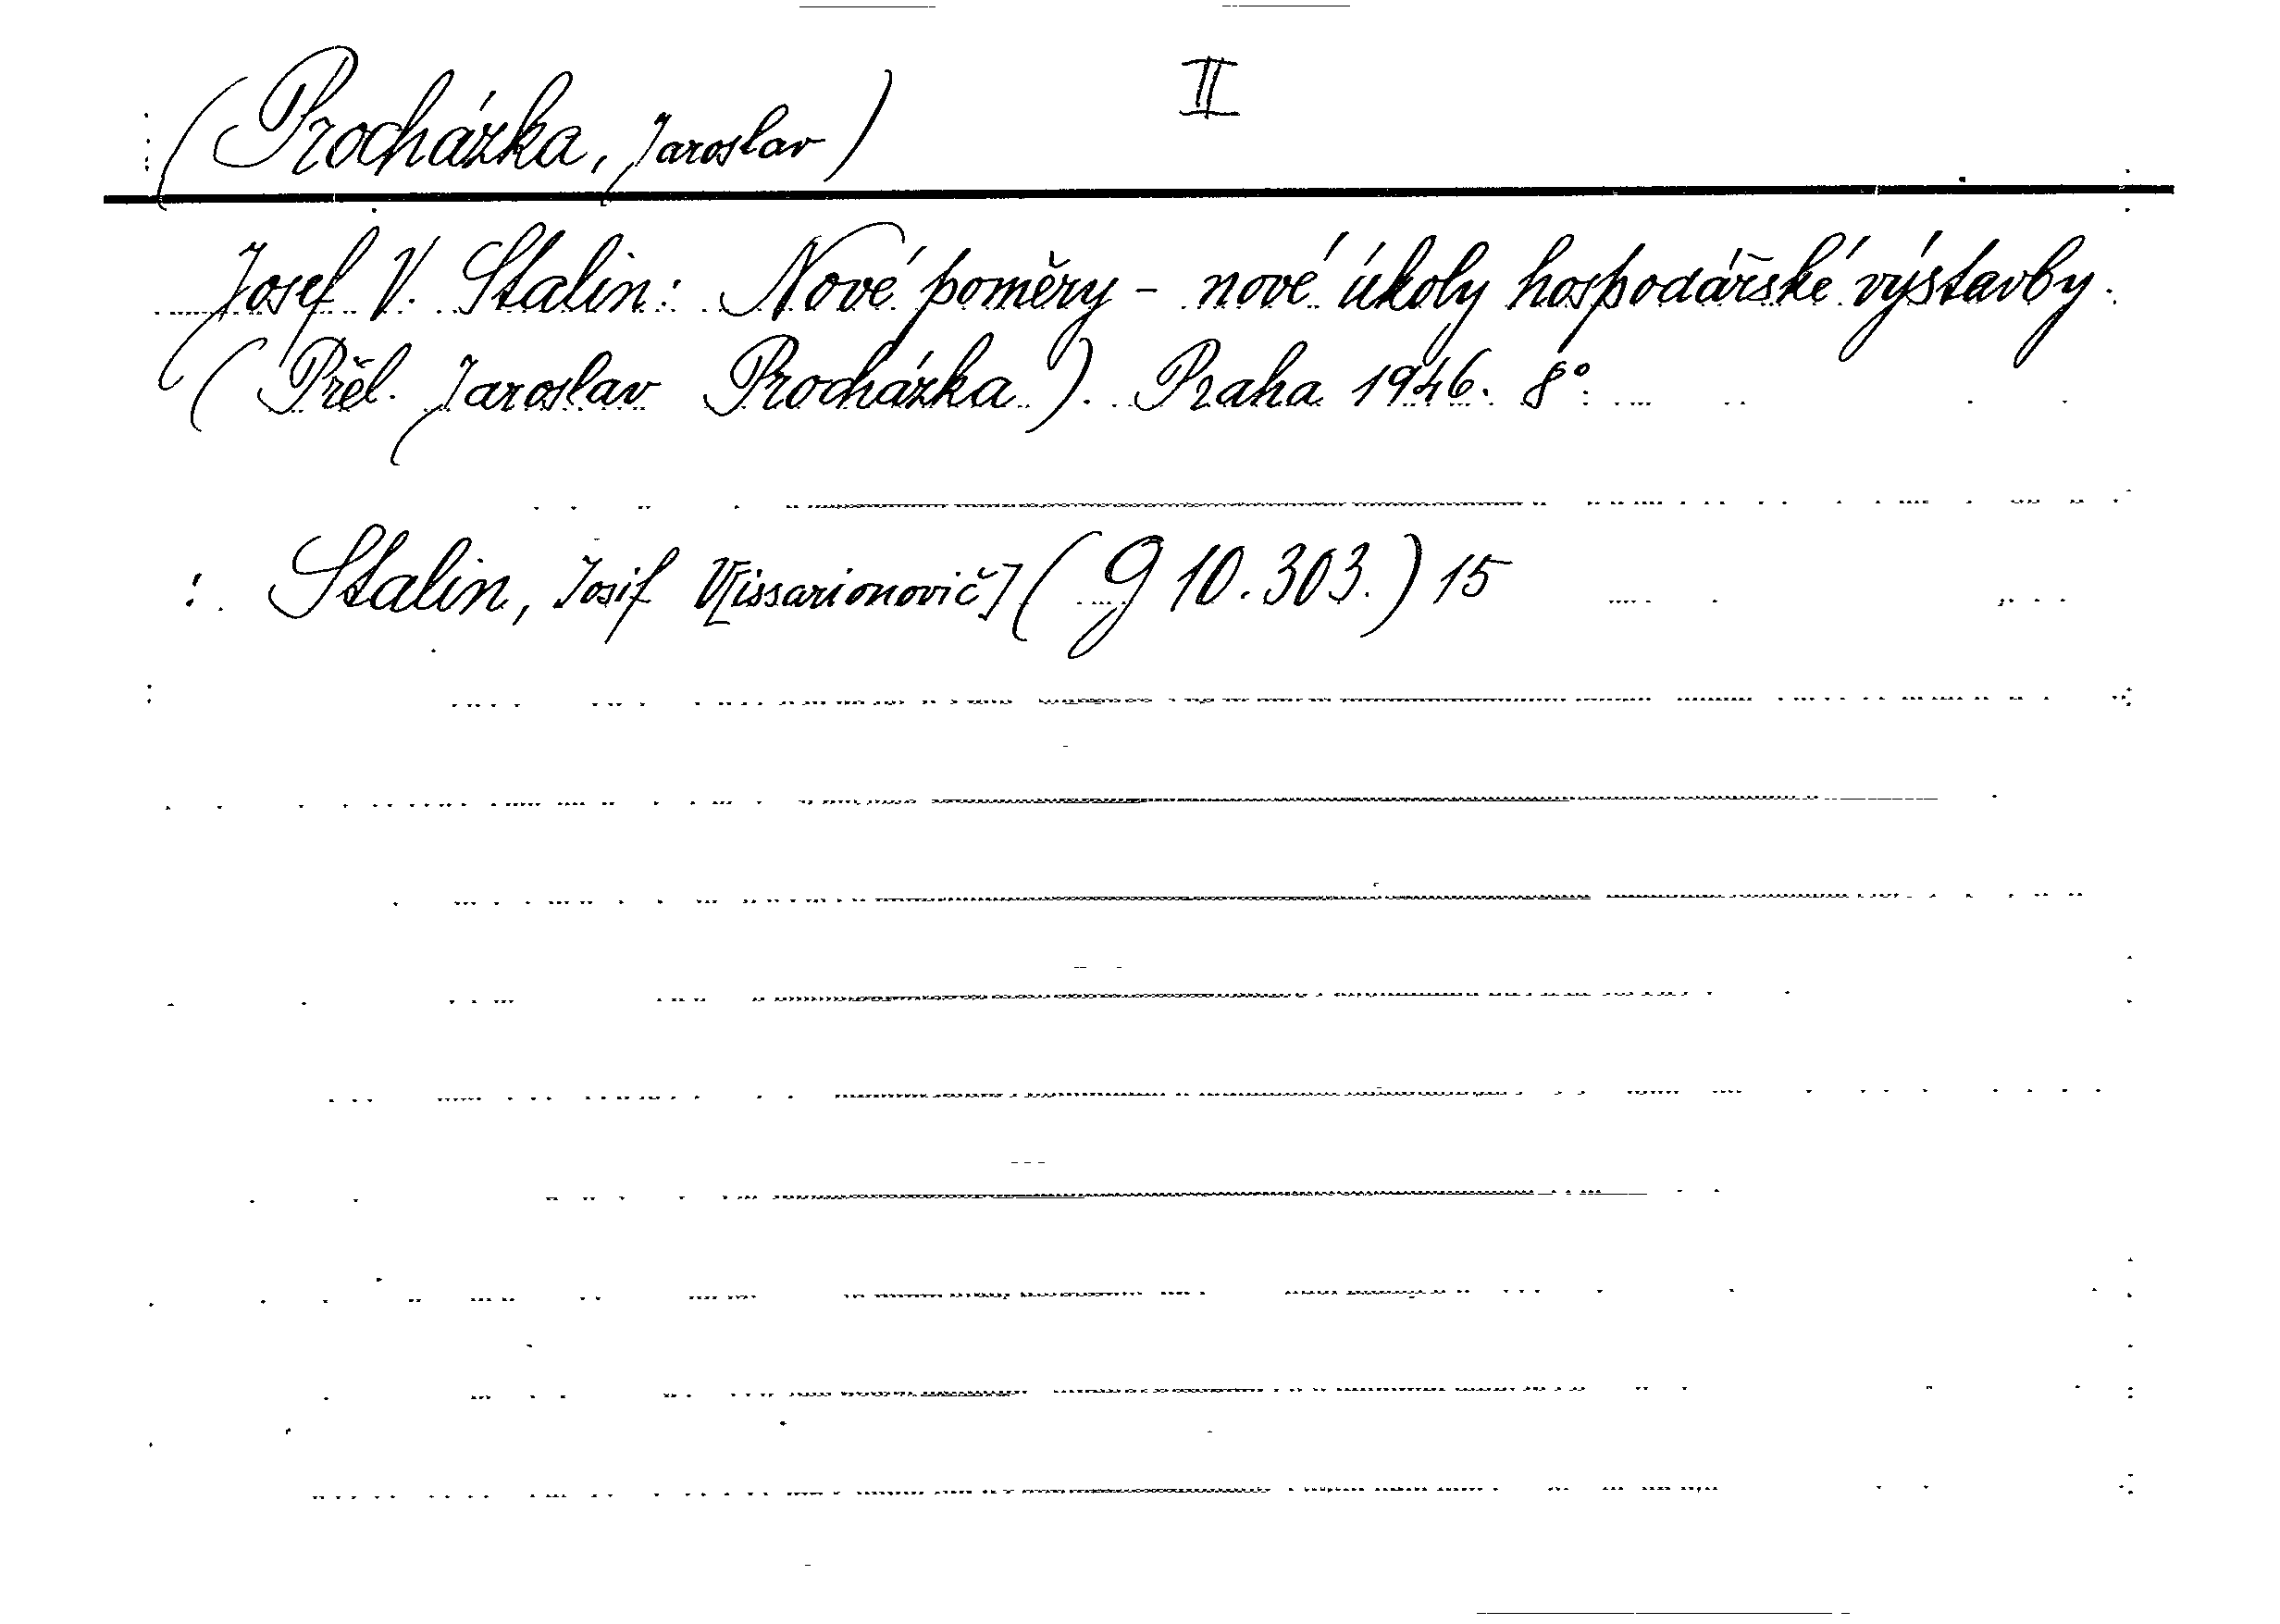 (Procházka, Jaroslav) II
Josef V. Stalin: Nové poměry - nové úkoly hospodářské výstavby.
(Přel. Jaroslav Procházka). Praha 1946. 8°.
: Stalin, Josif V[issarionovič] (g 10.303.) 15